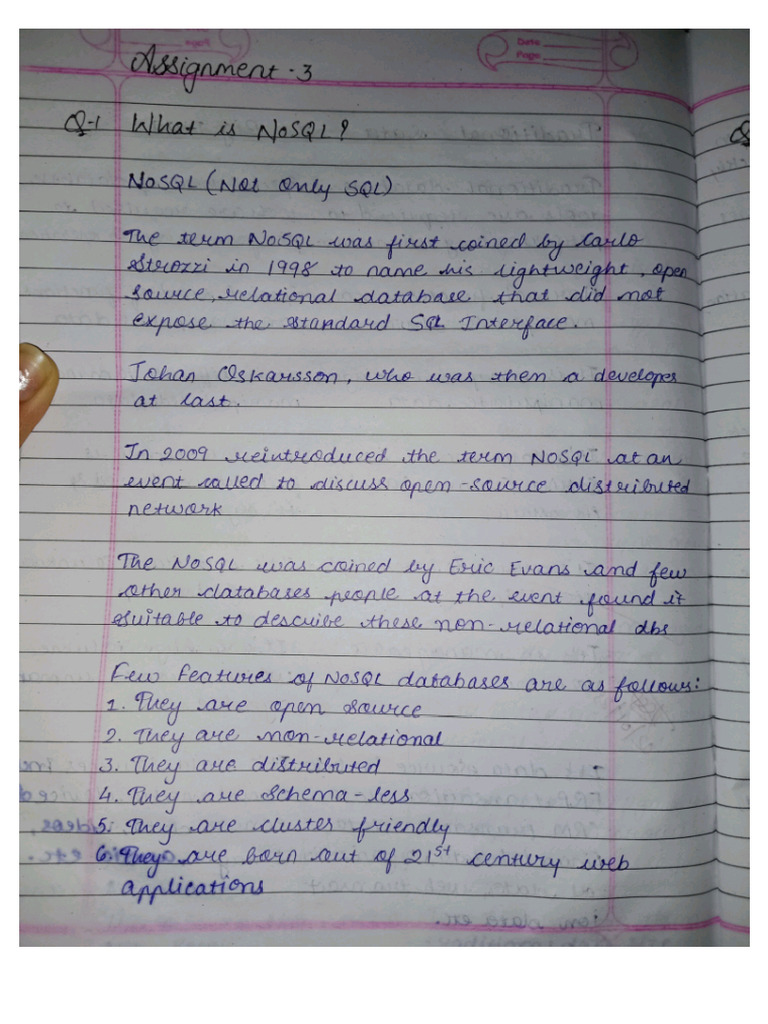 Date
Page
Assignment-3
Q-1 What is NoSQL?
NoSQL (Not Only SQL)
The term NoSQL was first coined by Carlo
Strozzi in 1998 to name his lightweight, open
source, relational database that did not
expose the standard SQL Interface.
Johan Oskarsson, who was them a developer
at last.
In 2009 reintroduced the term NOSQL at an
event called to discuss open-source distributed
network
The NoSQL was coined by Eric Evans and few
other databases people at the event found it
suitable to describe these non-relational dbs
Few features of NoSQL databases are as follows:
1. They are open source
2. They are non-relational
3. They are distributed
4. They are schema-less
5. They are cluster friendly
6. They are born out of 21st century web
applications